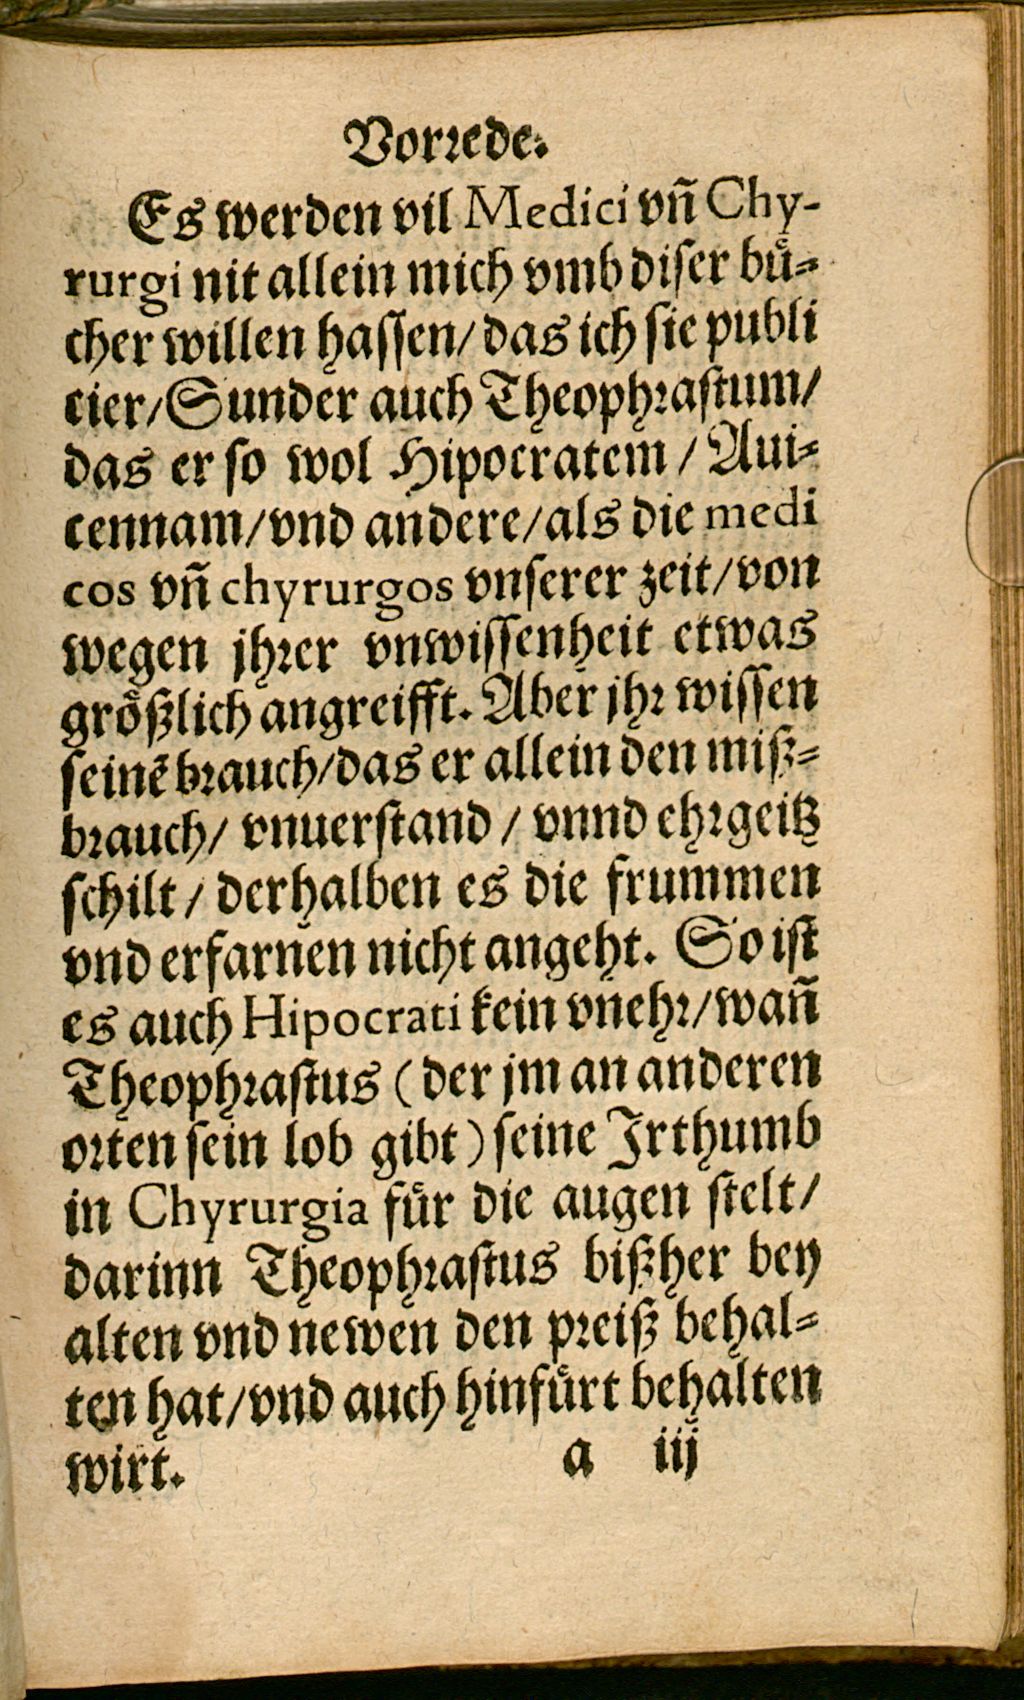 Vorrede.
Es werden vil Medici vñ Chy-
rurgi nit allein mich vmb diser buͤ-
cher willen hassen/ das ich sie publi
cier/ Sunder auch Theophrastum/
das er so wol Hipocratem / Aui-
cennam/ vnd andere/ als die medi
cos vñ chyrurgos vnserer zeit/ von
wegen jhrer vnwissenheit etwas
groͤßlich angreifft. Aber jhr wissen
seinẽ brauch/ das er allein den miß-
brauch/ vnuerstand / vnnd ehrgeitz
schilt / derhalben es die frummen
vnd erfarnen nicht angeht. So ist
es auch Hipocrati kein vnehr/ wañ
Theophrastus ( der jm an anderen
orten sein lob gibt ) seine Jrthumb
in Chyrurgia fuͤr die augen stelt/
darinn Theophrastus bißher bey
alten vnd newen den preiß behal-
ten hat/ vnd auch hinfuͤrt behalten
wirt. a iij